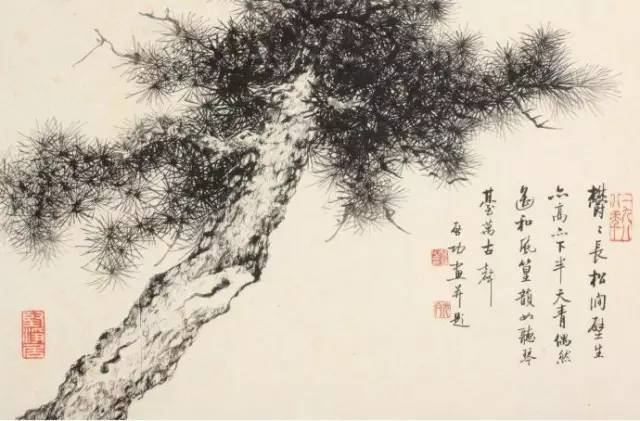 鬱〻長松向壁生
亦高亦下半天青偶然
遙和風篁韻如聽琴
臺萬古聲
啟功畫并題